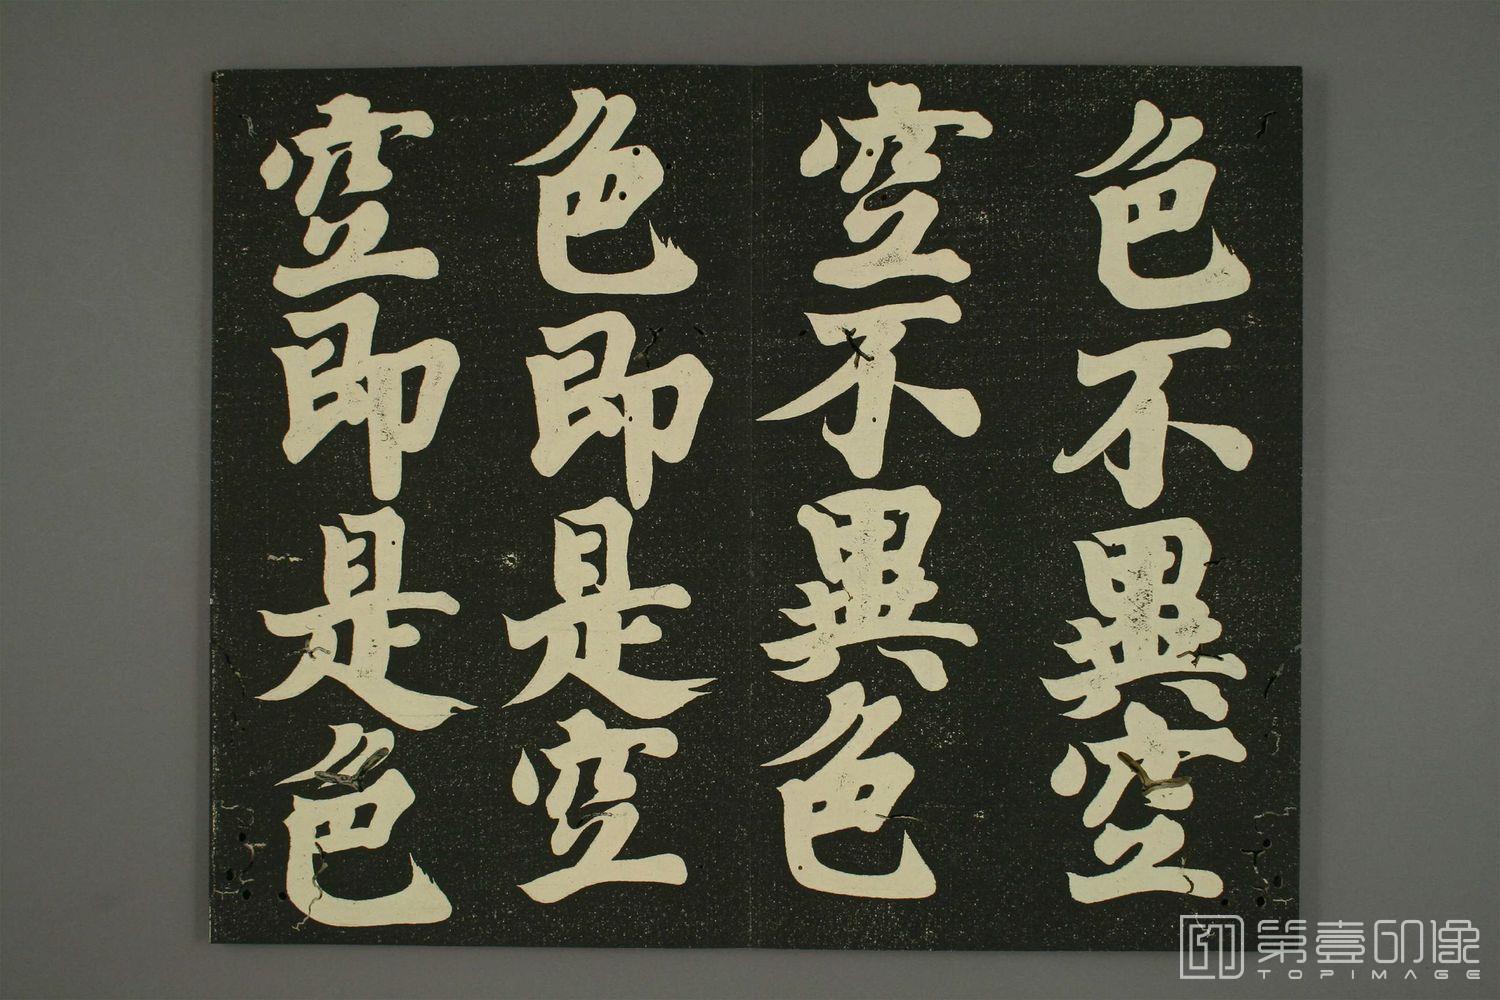 色不異空
空不異色
色即是空
空即是色
第壹印像
TOPIMAGE